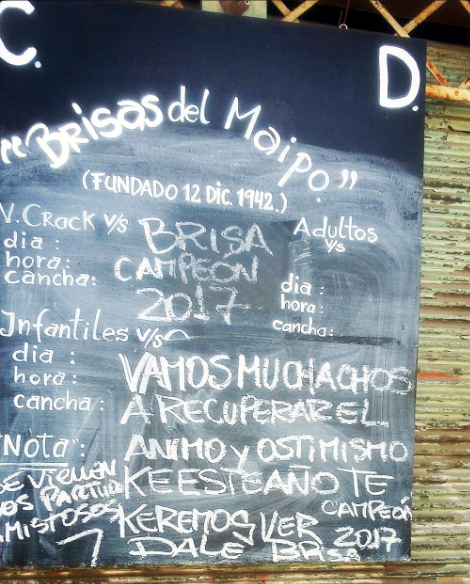 C. D.
"Brisas del Maipo."
(FUNDADO 12 DIC. 1942.)
V. Crack v/s BRISA Adultos
v/s
dia :
hora: CAMPEON
cancha: 2017
dia :
hora :
cancha:
Infantiles v/s
dia : VAMOS MUCHACHOS
hora :
cancha : A RECUPERAR EL
"Nota": ANIMO y OSTIMISMO
KE ESTE AÑO TE
KEREMOS VER CAMPEON
2017
DALE BRSA